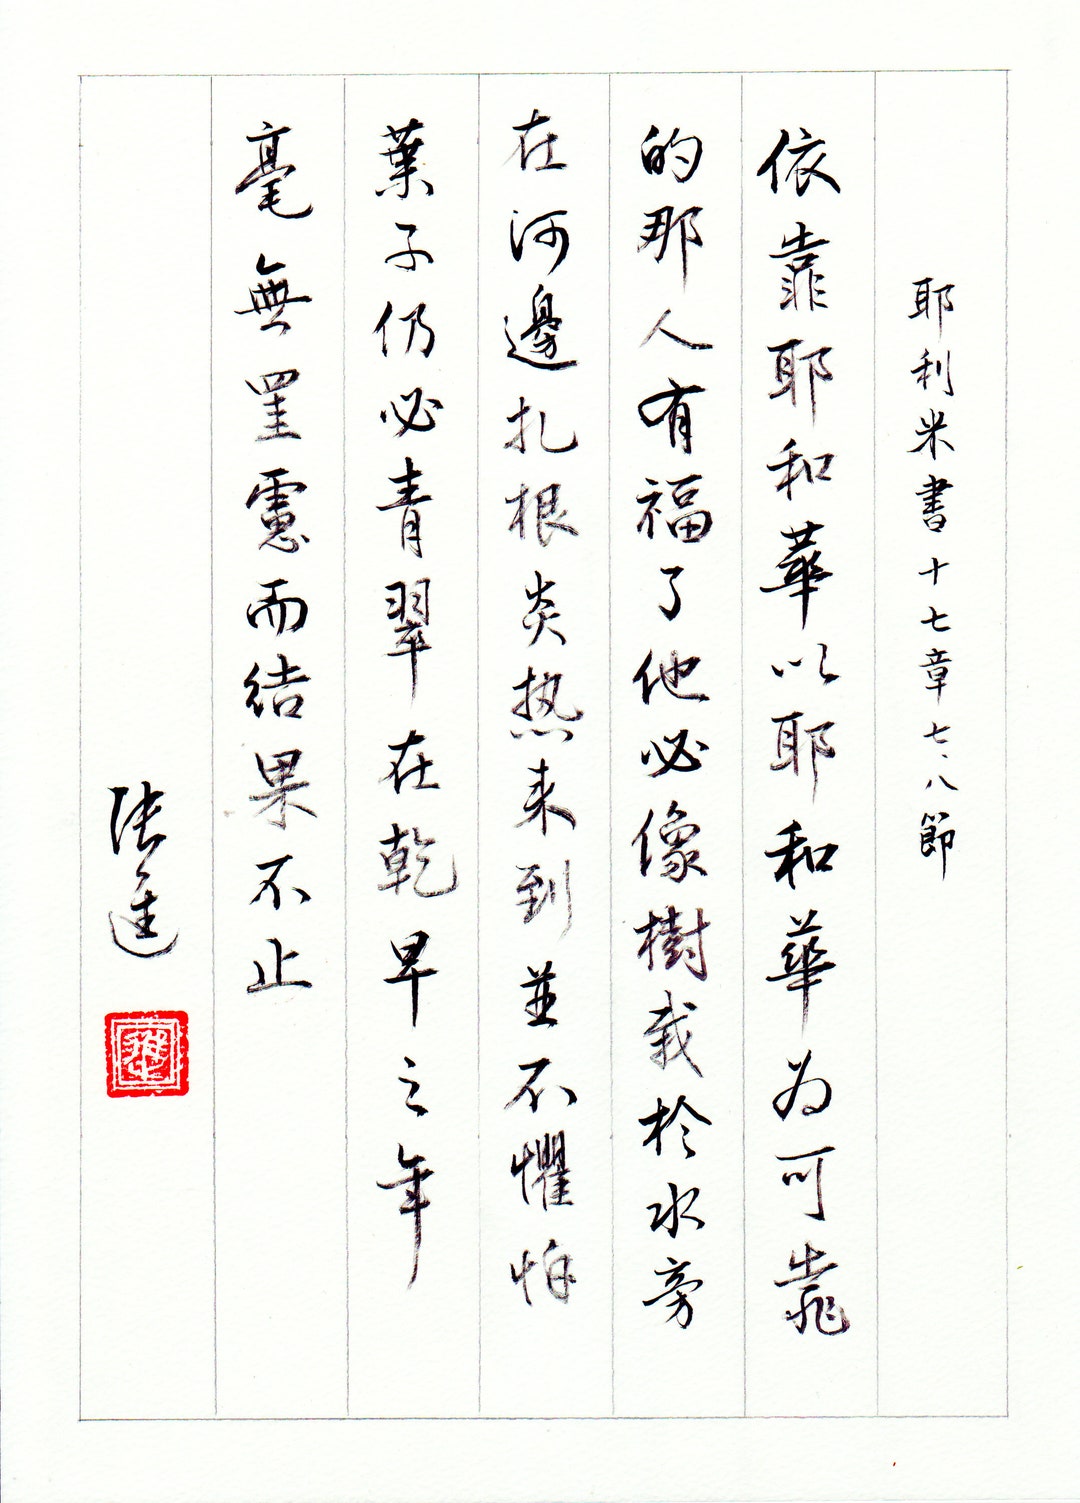 耶利米書十七章七、八節
依靠耶和華以耶和華为可靠
的那人有福了他必像樹栽於水旁
在河邊扎根炎热来到並不懼怕
葉子仍必青翠在乾旱之年
毫無罣慮而結果不止
张進